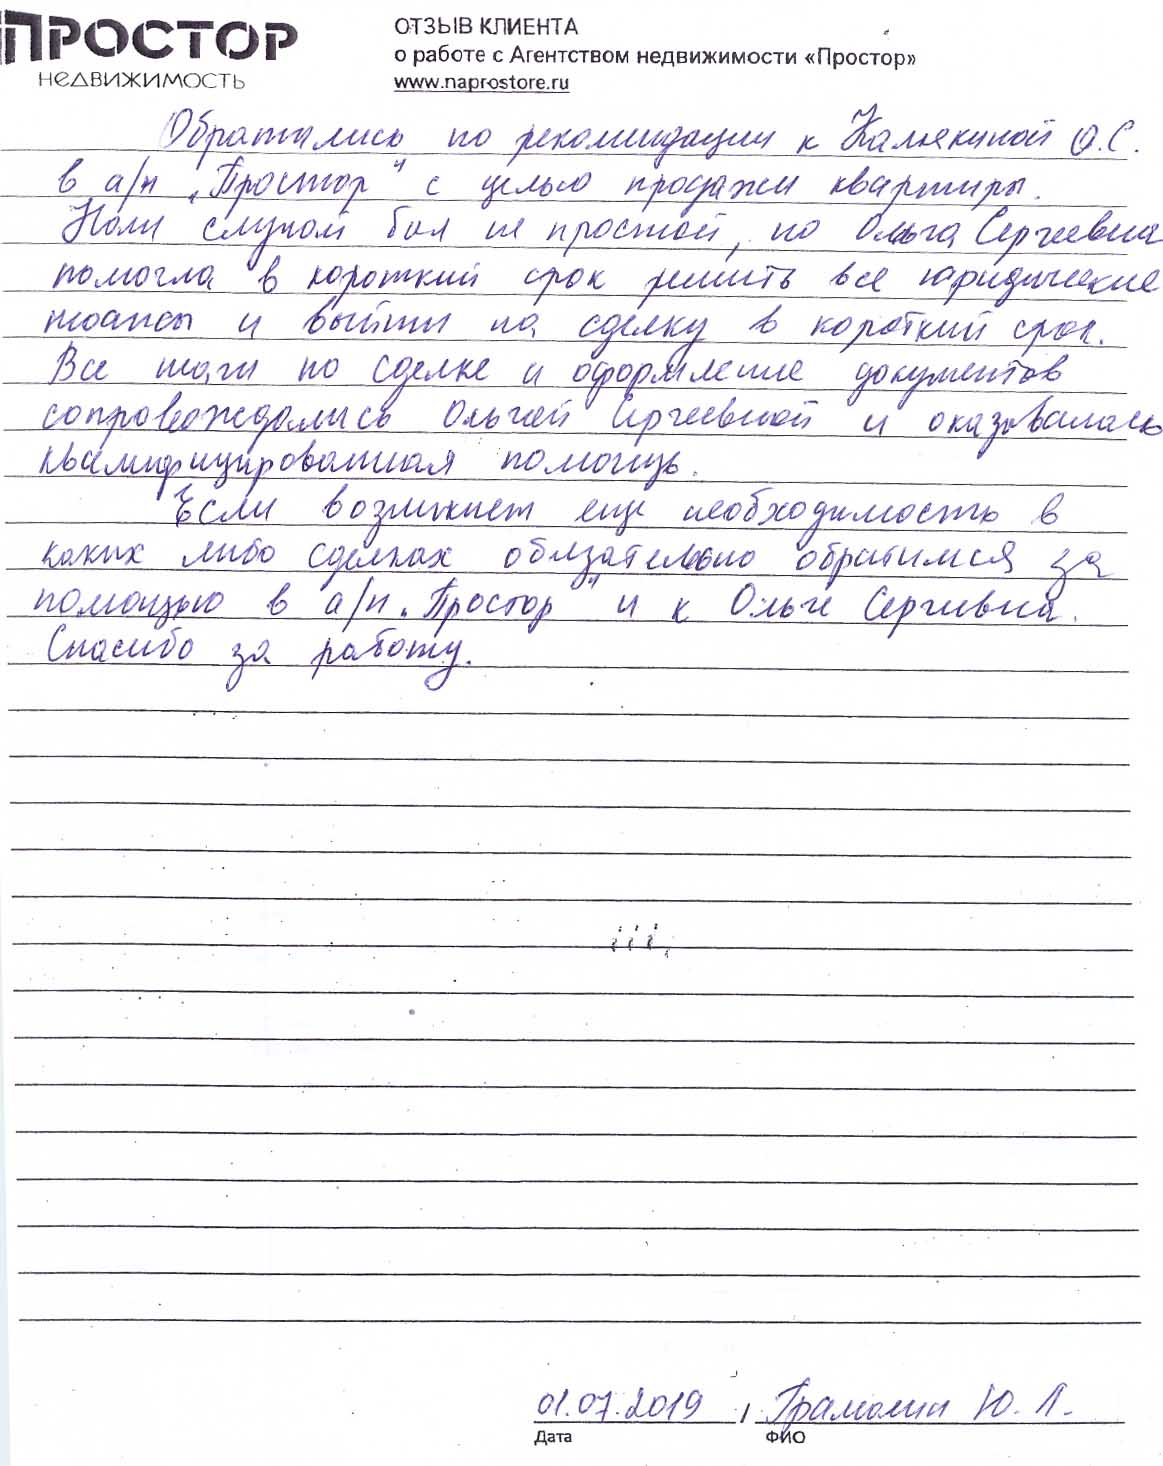 ПРОСТОР
НЕДВИЖИМОСТЬ
ОТЗЫВ КЛИЕНТА
о работе с Агентством недвижимости «Простор»
www.naprostore.ru
Обратились по рекомендации к Калякиной О.С.
в а/н „Простор" с целью продажи квартиры.
случай был не простой, но Ольга Сергеевна
помогла в короткий срок решить все юридические
нюансы и выйти на сделку в короткий срок.
Все шаги по сделке и оформление документов
сопровождались Ольгой Сергеевной и оказывалась
квалифицированная помощь.
Если возникнет еще необходимость в
каких либо сделках обязательно обратимся за
помощью в а/н „Простор" и к Ольге Сергевна.
Спасибо за работу.
01.07.2019 / Грамолин Ю. Л.
Дата ФИО